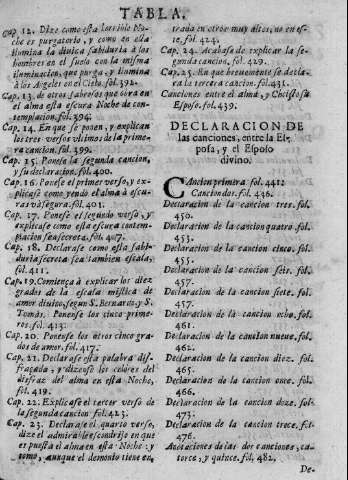 TABLA.
Cap 12. Dize como esta horrible No-
che es purgatorio, y como en ella
ilumina la divica sabiduria à los
hombres en el suelo con la misma
iluminacion, que purga, y ilumina
à los Angeles en el Cielo. fol. 392.
Cap. 13. de otros sabores que obra en
el alma esta escura Noche de con-
templacion. fol. 394.
Cap. 14. En que se ponen, y explican
los tres versos vltimos de la prime-
ra cancion. fol. 399.
Cap. 15. Ponese la segunda cancion,
y su declaracion. fol. 400.
Cap. 16. Ponese el primer verso, y ex-
plicase como yendo el alma à escu-
ras và segura. fol. 401.
Cap. 17. Ponese el segundo verso, y
explicase como esta escura contem-
placion sea secreta. fol. 407.
Cap. 18. Declarase como esta sabi-
duria secreta sea tambien escala.
fol. 411.
Cap. 19. Comiença à explicar los diez
grados de la escala mistica de
amor divino, segun S. Bernardo, y S.
Tomàs. Ponense los cinco prime-
ros. fol. 413.
Cap. 20. Ponense los otros cinco gra-
dos de amor. fol. 417.
Cap. 21. Declarase esta palabra dis-
fraçada, y dizense los colores del
disfraz del alma en esta Noche,
fol. 419.
Cap. 22. Explicase el tercer verso de
la segunda cancion fol. 423.
Cap. 23. Declarase el quarto verso,
dize el admirable escondrijo en que
es puesta el alma en esta Noche: y
como, aunque el demonio tiene en-
trada en otros muy altos, no en es-
te. fol. 424.
Cap. 24. Acabase de explicar la se-
gunda cancion, fol. 429.
Cap. 25. En que brevemente se decla-
ra la tercera cancion. fol. 431.
Canciones entre el alma, y Christo su
Esposo. fol. 439.
DECLARACION DE
las canciones, entre la Es-
posa, y el Esposo
divino.
Cancion primera fol. 441.
Cancion dos. fol. 436.
Declaracion de la cancion tres. fol.
450.
Declaracion de la cancion quatro fol.
453.
Declaracion de la cancion cinco. fol.
455.
Declaracion de la cancion seis. fol.
457.
Declaracion de la cancion siete. fol.
457.
Declaracion de la cancion ocho. fol.
461.
Declaracion de la cancion nueve. fol.
462.
Declaracion de la cancion diez. fol.
464.
Declaracion de la cancion once. fol.
466.
Declaracion de la cancion doze. fol.
473.
Declaracion de la cancion trece. fol.
476.
Anotaciones de las dos canciones, ca-
torce, y quince. fol. 482.
De-